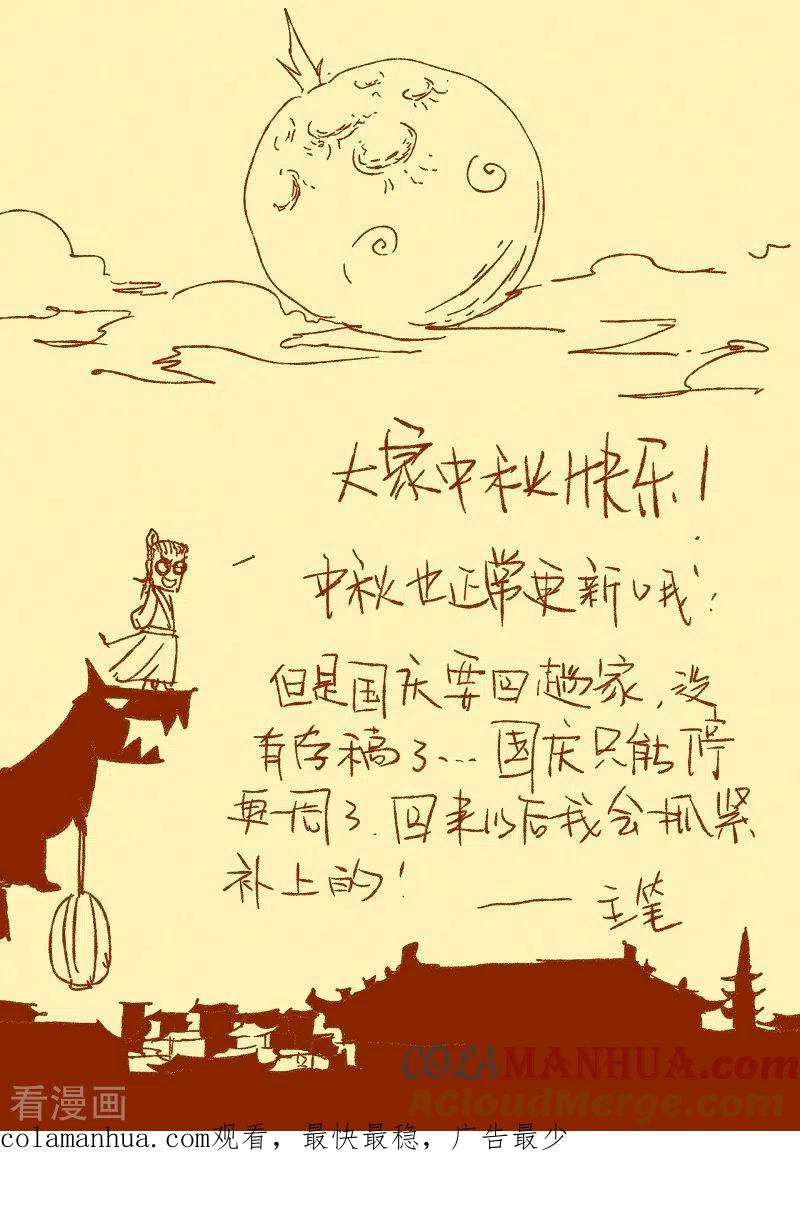 大家中秋快乐！
中秋也正常更新哦！
但是国庆要回趟家，没
有存稿了... 国庆只能停
更一周了.回来以后我会抓紧
补上的！
—— 主笔
COLAMANHUA.com
ACloudMerge.com
看漫画
colamanhua.com观看，最快最稳，广告最少